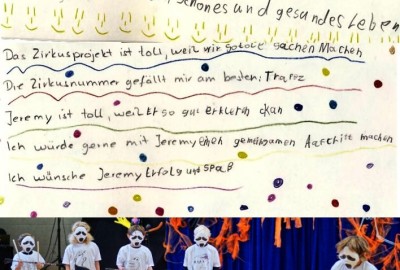 schönes und gesundes Leben
Das Zirkusprojekt ist toll, weil wir sachen Machen
Die Zirkusnummer gefällt mir am besten: Trapez
Jeremy ist toll, weil Er so gut erklern ckan
Ich würde gerne mit Jeremy einen gemeinsamen Auftritt machen
Ich wünsche Jeremy Erfolg und SPaß